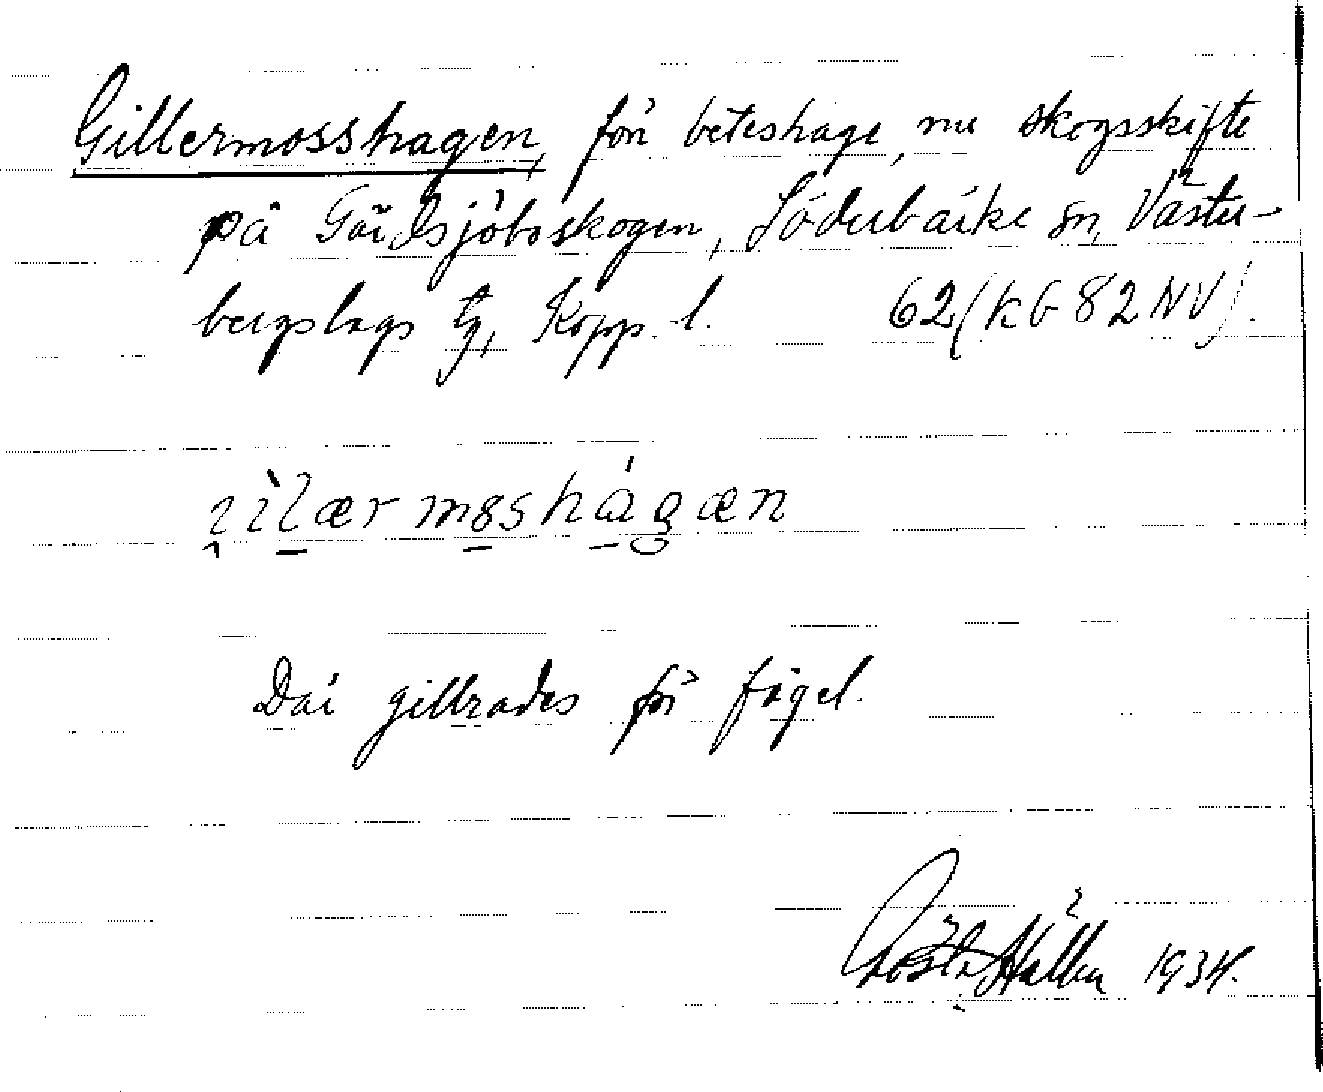 Gillermosshagen, förr beteshage, nu skogsskifte
på Gårdsjöboskogen, Söderbärke sn, Väster-
bergslags tg, Kopp. l. 62 (kb 82 NV).
Där gillrades för fågel.
Gösta 1934.